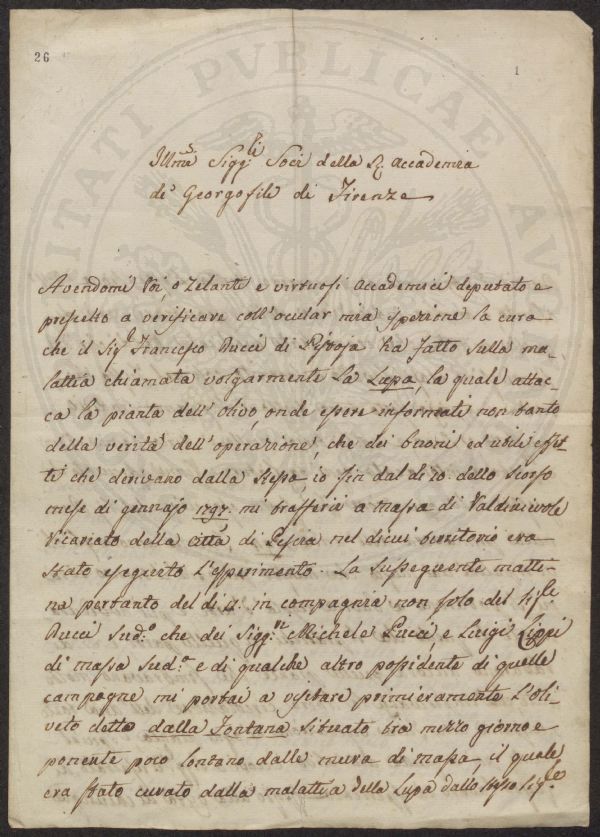 26
1
PVBLICAE
Illmi Sigg.li Soci della R. Accademia
de' Georgofili di Firenze
Avendomi Voi, o Zelanti e virtuosi Accademici deputato e
prescelto a verificare coll'ocular mia ispezione la cura
che il Sig.e Francesco Bucci di Pistoja ha fatto sulla ma-
lattia chiamata volgarmente La Lupa, la quale attac-
ca la pianta dell'olivo, onde essere informati non tanto
della verità dell'operazione, che dei buoni ed utili effet-
ti che derivano dalla stessa, io fin dal dì 20. dello scorso
mese di gennajo 1797. mi trasferii a Massa di Valdinievole
Vicariato della Città di Pescia nel di cui territorio era
stato eseguito l'esperimento. La susseguente matti-
na pertanto del dì 21. in compagnia non solo del Sig.le
Bucci sud.o che dei Sigg.ri Michele Pucci, e Luigi Lippi
di Massa sud.a e di qualche altro possidente di quelle
campagne mi portai a visitare primieramente l'oli-
veto detto dalla Fontana situato tra mezzo giorno e
ponente poco lontano dalle mura di Massa, il quale
era stato curato dalla malattia della Lupa dallo stesso Sig.le